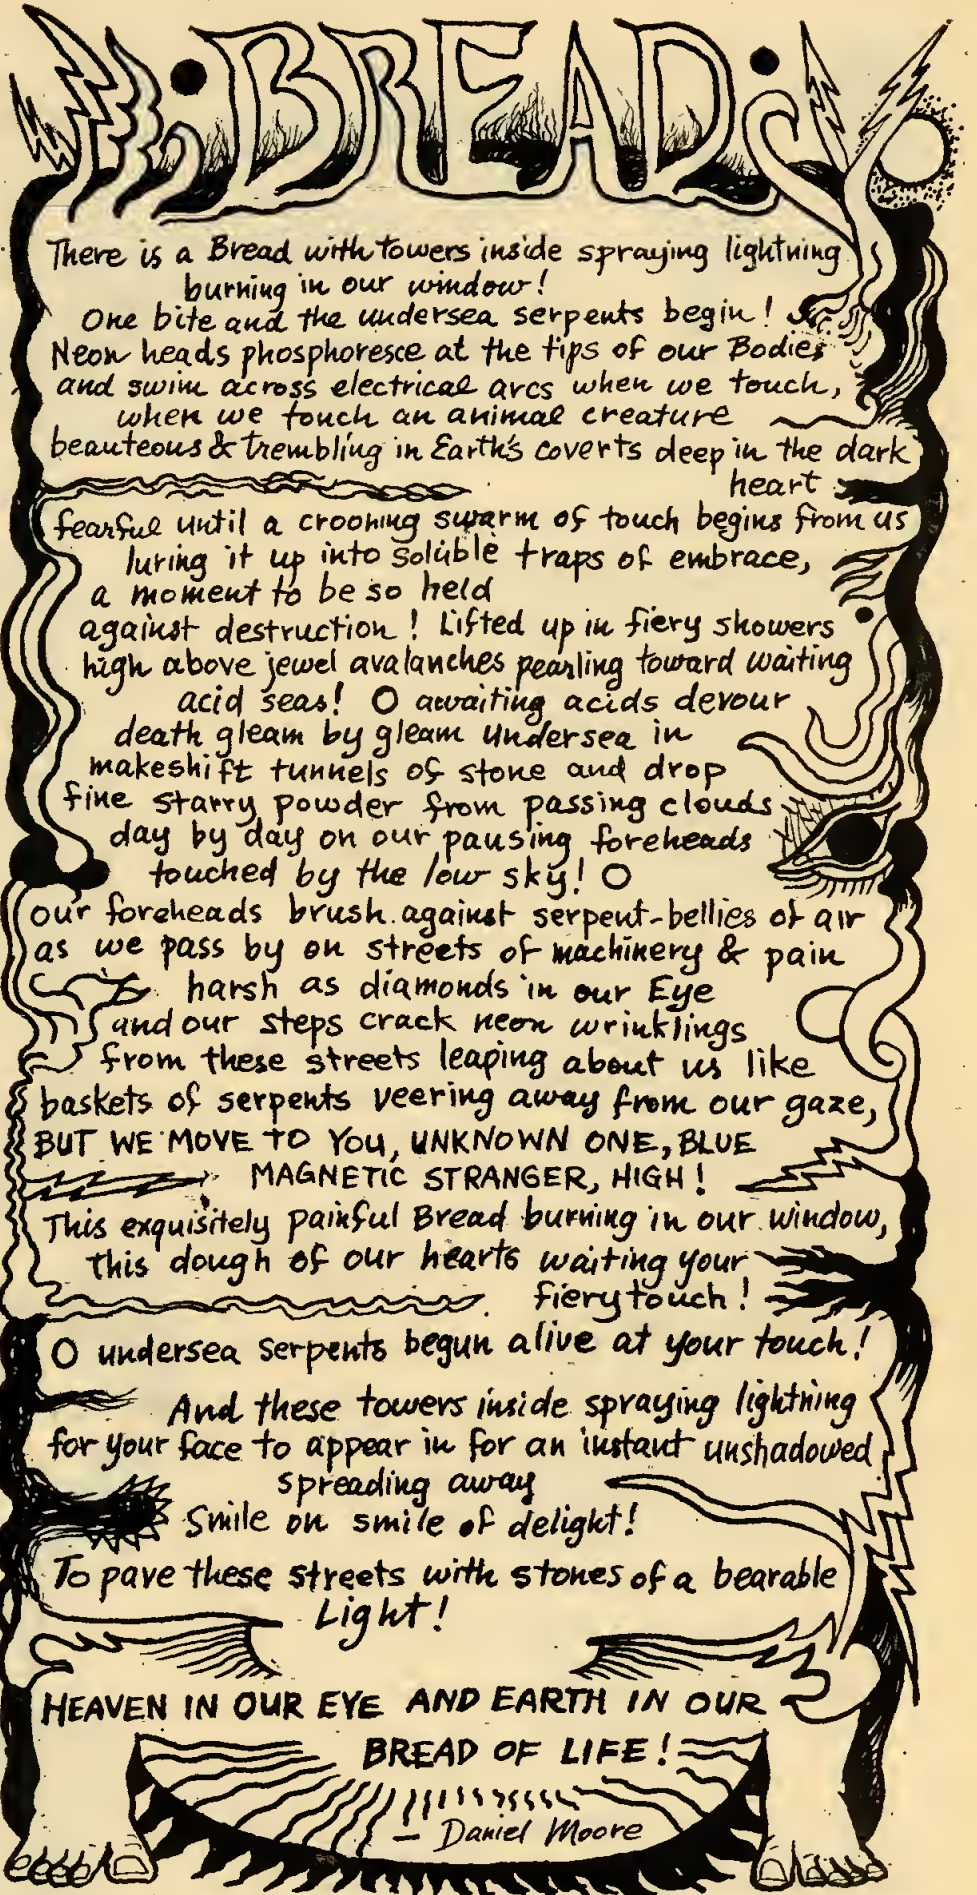 BREAD
There is a Bread with towers inside spraying lightning
burning in our window!
One bite and the undersea serpents begin!
Neon heads phosphoresce at the tips of our Bodies
and swim across electrical arcs when we touch,
when we touch an animal creature
beauteous & trembling in Earth's coverts deep in the dark
heart
fearful until a crooning swarm of touch begins from us
luring it up into soluble traps of embrace,
a moment to be so held
against destruction! Lifted up in fiery showers
high above jewel avalanches pearling toward waiting
acid seas! O awaiting acids devour
death gleam by gleam undersea in
makeshift tunnels of stone and drop
fine starry powder from passing clouds
day by day on our pausing foreheads
touched by the low sky! O
our foreheads brush against serpent-bellies of air
as we pass by on streets of machinery & pain
harsh as diamonds in our Eye
and our steps crack neon wrinklings
from these streets leaping about us like
baskets of serpents veering away from our gaze,
BUT WE MOVE TO YOU, UNKNOWN ONE, BLUE
MAGNETIC STRANGER, HIGH!
This exquisitely painful Bread burning in our window,
this dough of our hearts waiting your
fiery touch!
O undersea serpents begun alive at your touch!
And these towers inside spraying lightning
for your face to appear in for an instant unshadowed
spreading away
Smile on smile of delight!
To pave these streets with stones of a bearable
Light!
HEAVEN IN OUR EYE AND EARTH IN OUR
BREAD OF LIFE!
— Daniel Moore